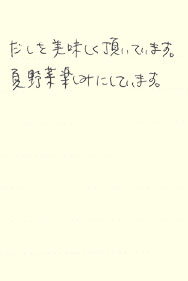 だしを美味しく頂いています。
夏野菜楽しみにしています。